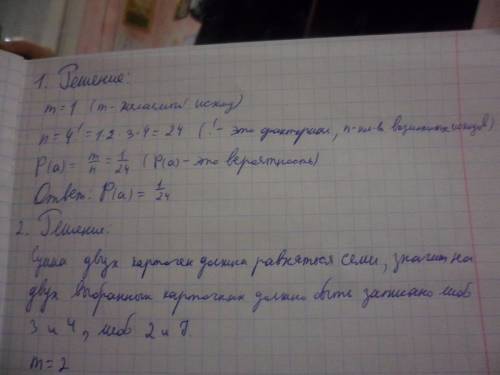 1. Решение:
m=1 (m - желаемый исход)
n=4!=1·2·3·4=24 (! - это факториал, n - кол-в возможных исходов)
P(a)=m/n=1/24 (P(a) - это вероятность)
Ответ: P(a)=1/24
2. Решение:
Сумма двух карточек должна равняться семи, значит на
двух выбранных карточках должно быть записано либо
3 и 4, либо 2 и 5.
m=2